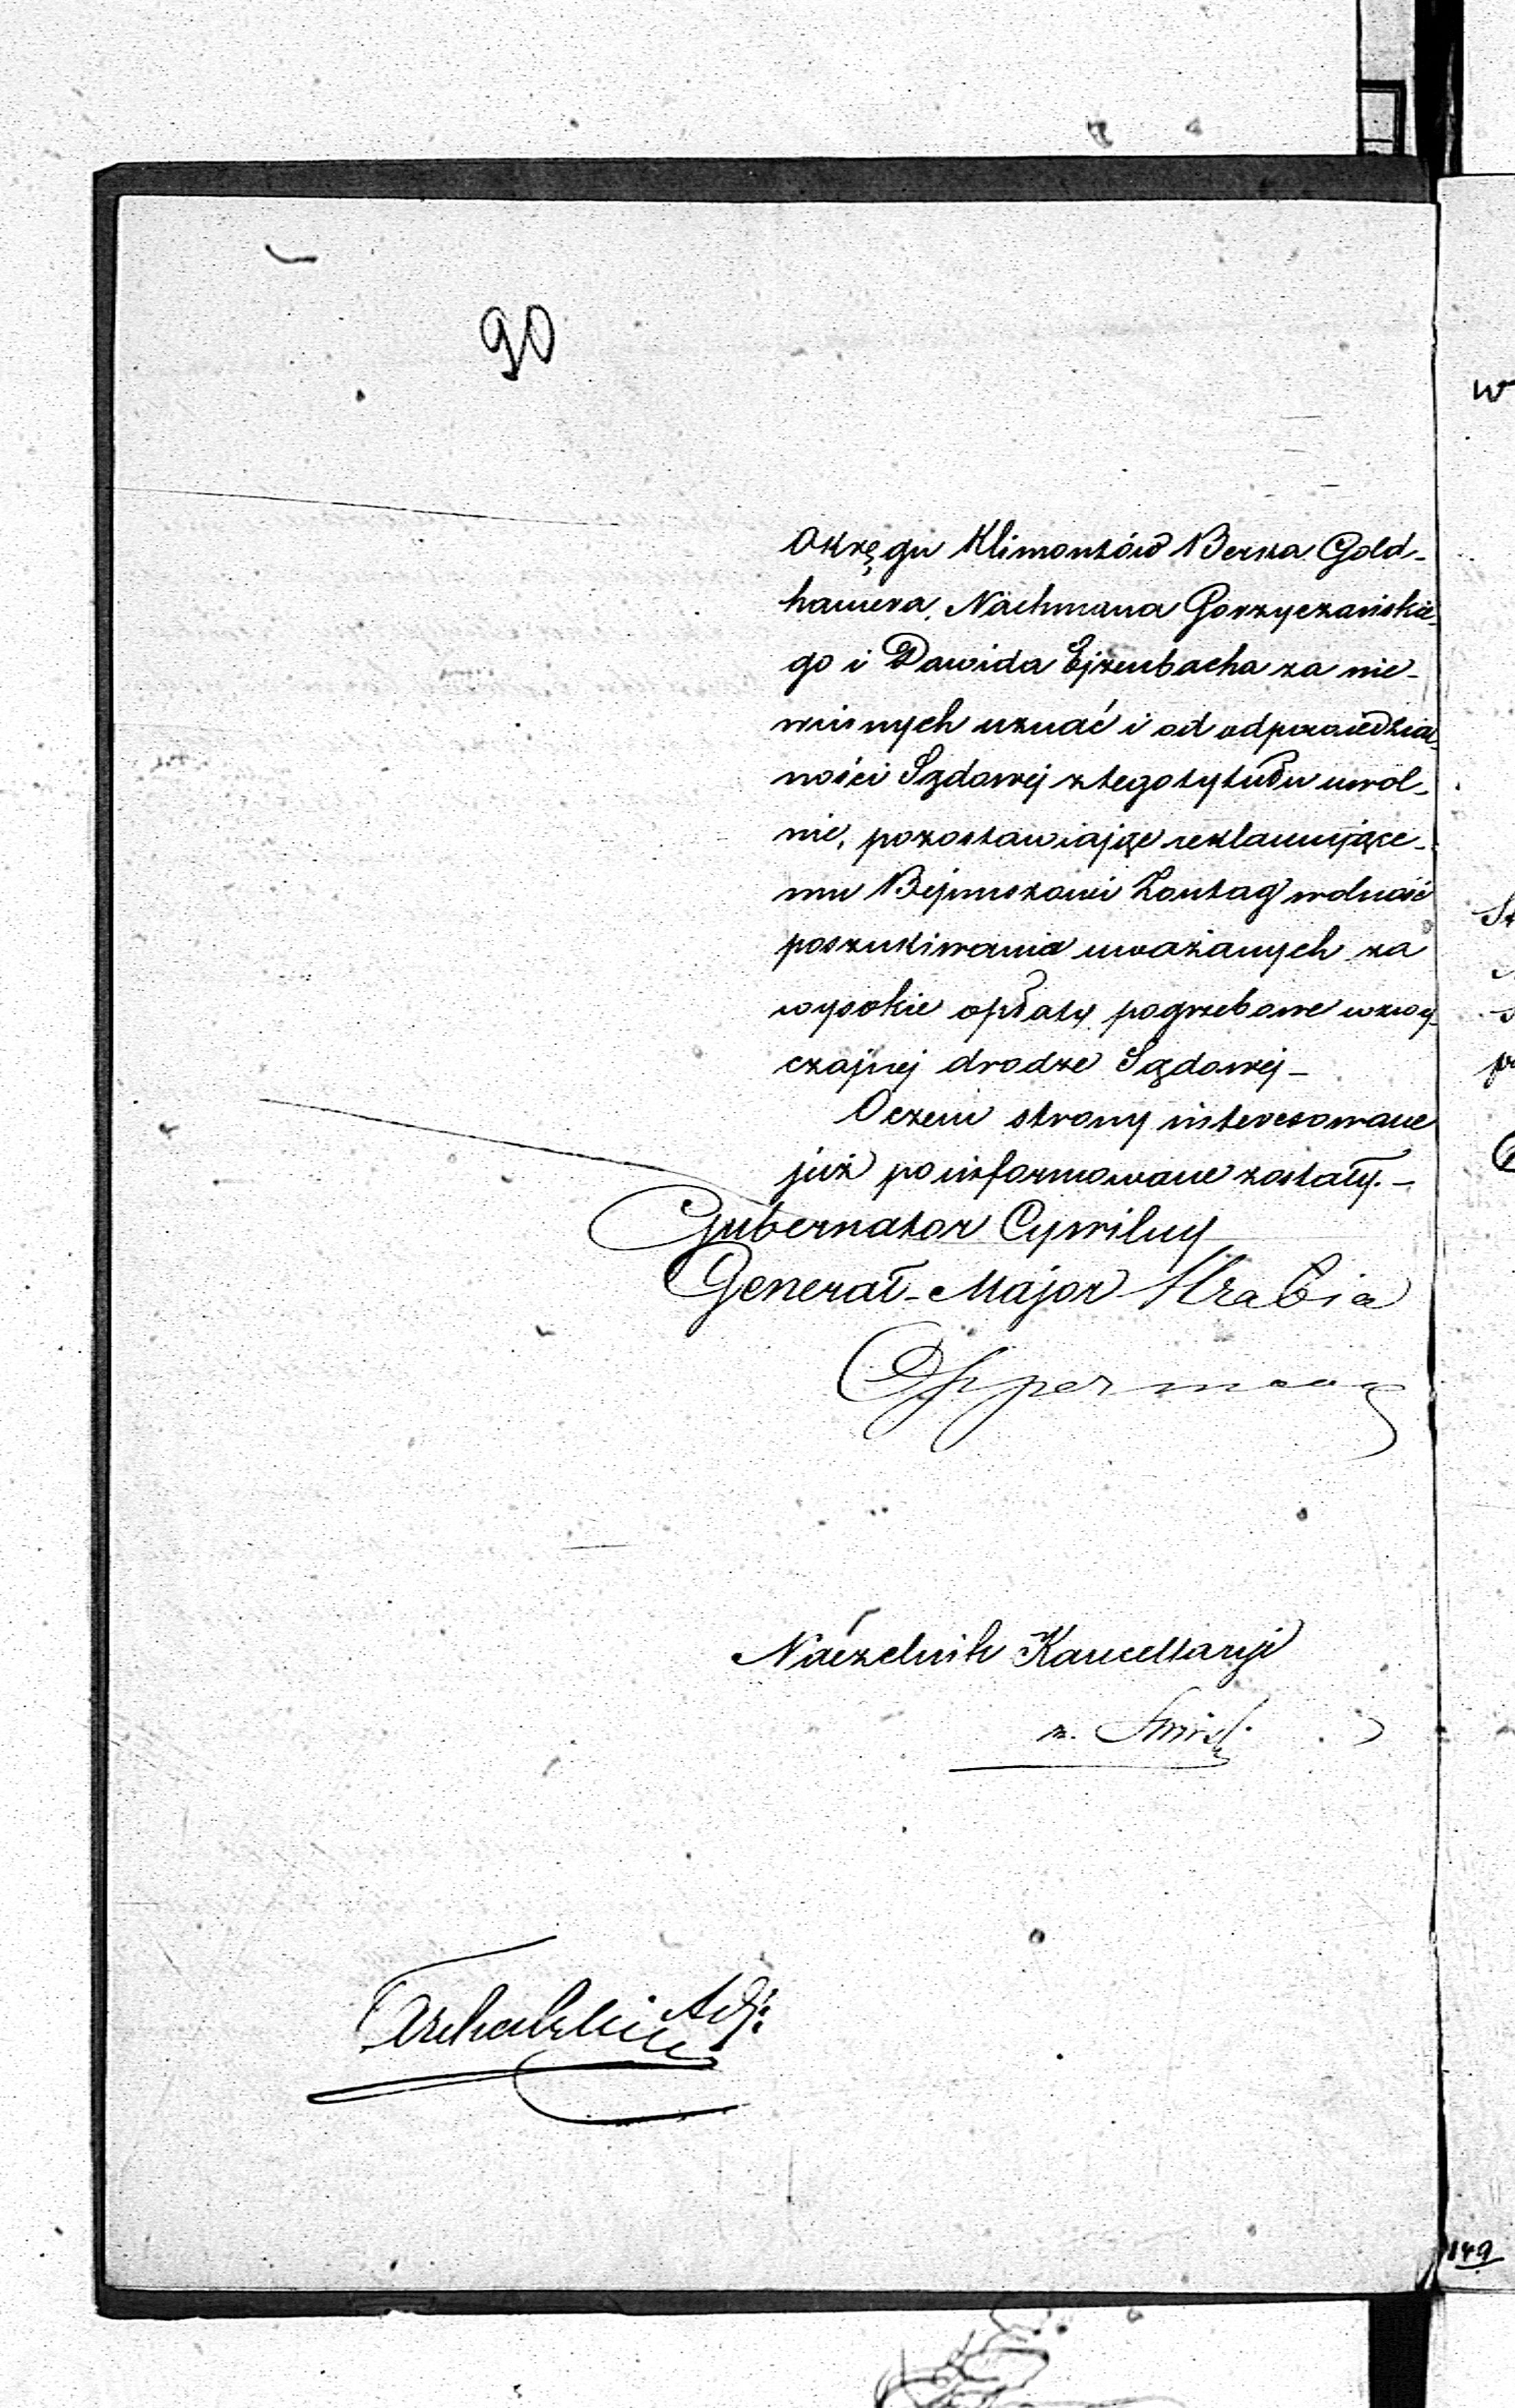 90
Okręgu Klimontów Berka Gold-
hamera, Nachmana Gorzyczańskie-
go i Dawida Ejzenbacha za nie-
winnych uznać i od odpowiedzial-
ności Sądowej z tego tytułu uwol-
nić, pozostawiając reklamujące-
mu Bejnuszowi Zontag wolność
poszukiwania uważanych za
wysokie opłaty pogrzebowe w zwy-
czajnej drodze Sądowej –
O czem strony interesowane
już poinformowane zostały. –
Gubernator Cywilny
Generał-Major Hrabia
Opperman
Naczelnik Kancellaryi
z.
Adj:
149